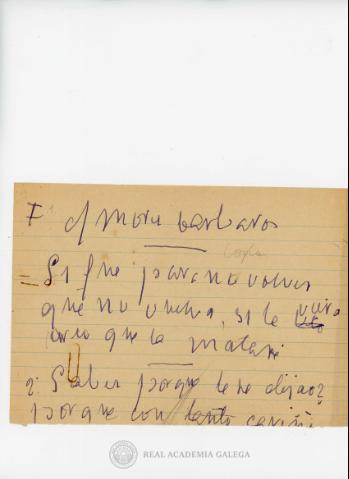 I
Amores barbaros
Copla
= Si fue para no volver
que no vuelva, si le viera
creo que la mataré
Saber porque le he dejao?
porque con tanto cariño
REAL ACADEMIA GALEGA